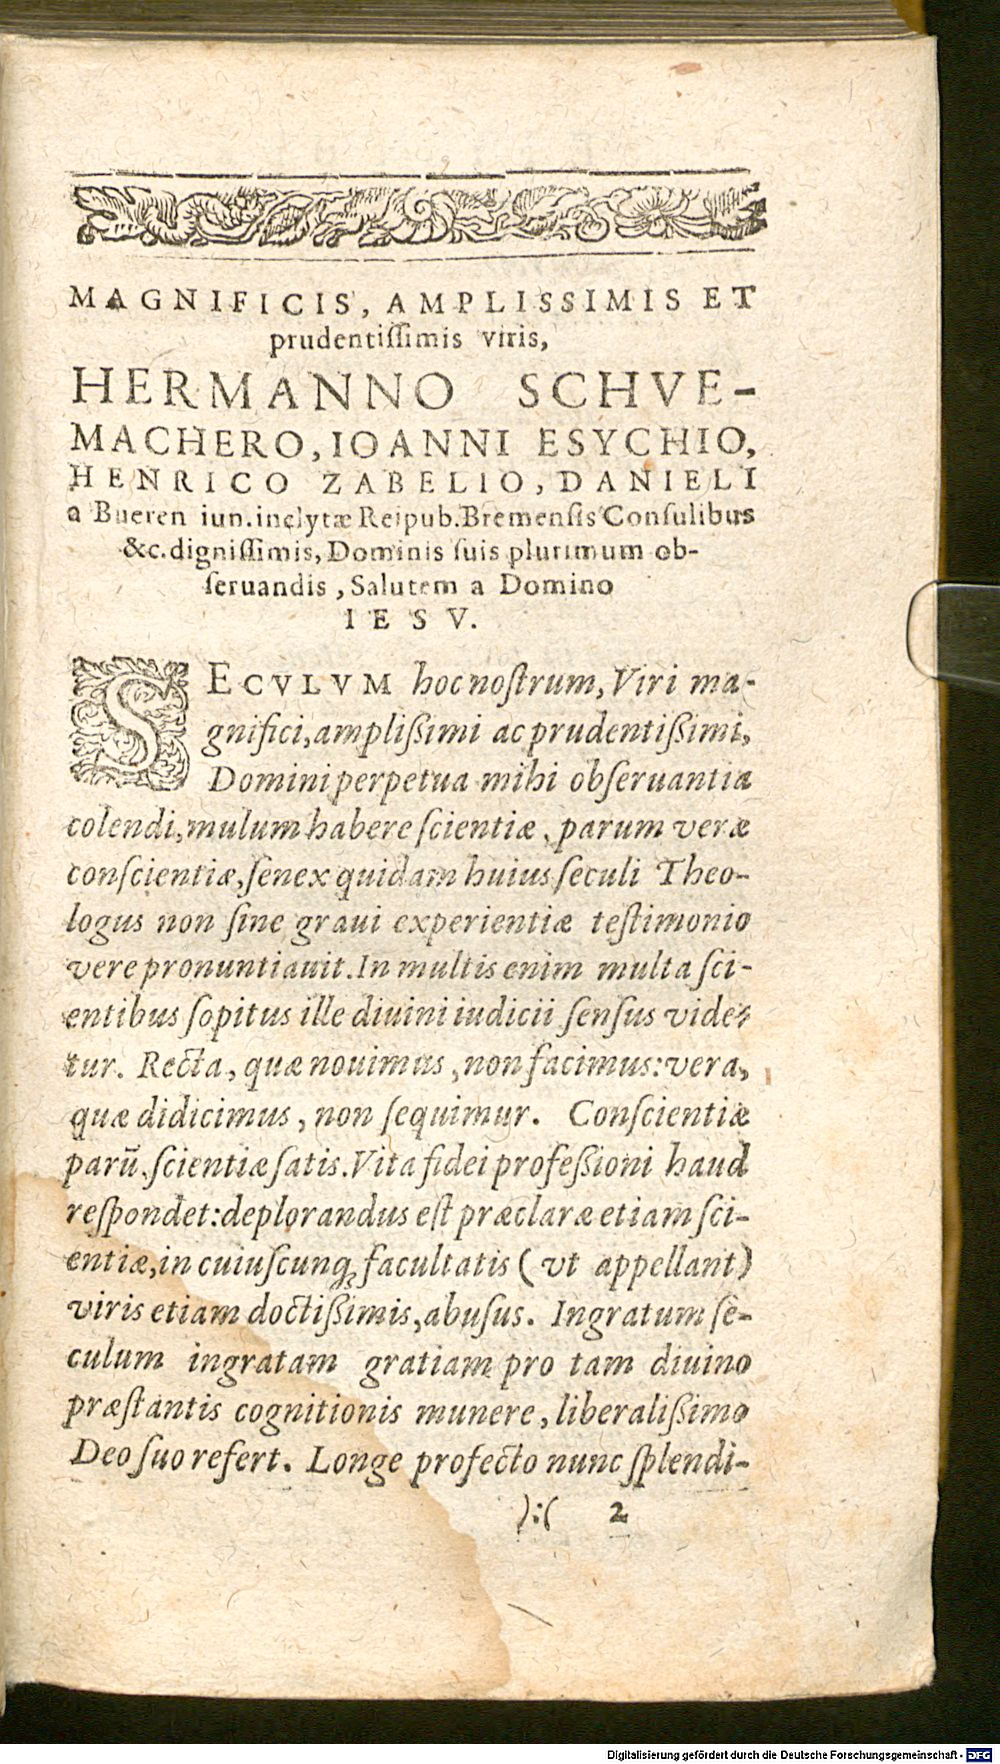 MAGNIFICIS, AMPLISSIMIS ET
prudentiſſimis viris,
HERMANNO SCHVE-
MACHERO, IOANNI ESYCHIO,
HENRICO ZABELIO, DANIELI
a Bueren iun. inclytæ Reipub. Bremenſis Conſulibus
&c. digniſſimis, Dominis ſuis plurimum ob-
ſeruandis, Salutem a Domino
IESV.
SECVLVM hoc noſtrum, Viri ma-
gnifici, ampliſſimi ac prudentiſſimi,
Domini perpetua mihi obſeruantia
colendi, mulum habere ſcientiæ, parum veræ
conſcientiæ, ſenex quidam huius ſeculi Theo-
logus non ſine graui experientiæ teſtimonio
vere pronuntiauit. In multis enim multa ſci-
entibus ſopitus ille diuini iudicii ſenſus vide-
tur. Recta, quæ nouimus, non facimus: vera,
quæ didicimus, non ſequimur. Conſcientiæ
parũ. ſcientiæ ſatis. Vita fidei profeſſioni haud
reſpondet: deplorandus eſt præclaræ etiam ſci-
entiæ, in cuiuſcunq; facultatis (vt appellant)
viris etiam doctiſſimis, abuſus. Ingratum ſe-
culum ingratam gratiam pro tam diuino
præſtantis cognitionis munere, liberaliſſimo
Deo ſuo refert. Longe profecto nunc ſplendi-
):( 2
Digitalisierung gefördert durch die Deutsche Forschungsgemeinschaft - DFG